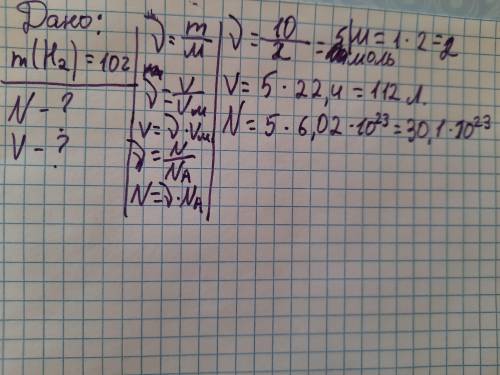 Дано:
m(H₂) = 10г
N - ?
V - ?
ν = m/M
ν = V/Vм
V = ν · Vм
ν = N/Nₐ
N = ν · Nₐ
ν = 10/2 = 5 моль
M = 1 · 2 = 2
V = 5 · 22,4 = 112 л.
N = 5 · 6,02 · 10²³ = 30,1 · 10²³